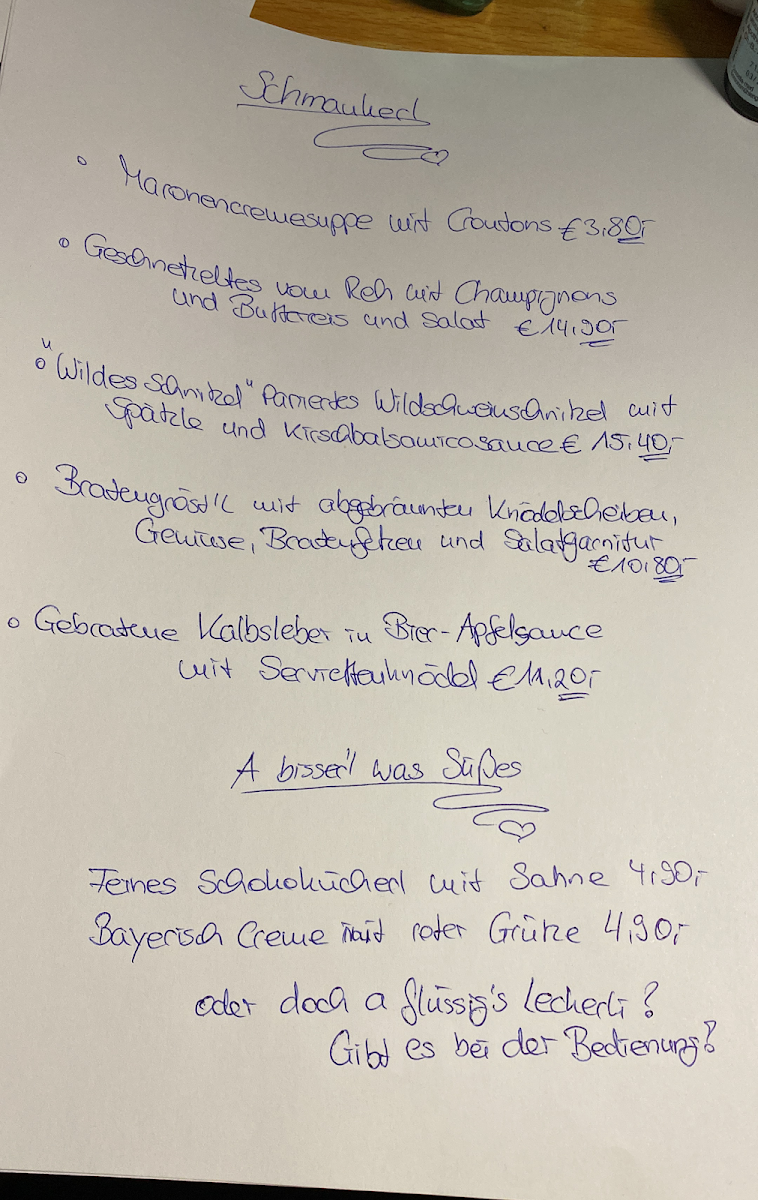 Schmankerl
Maronencremesuppe mit Croutons € 3,80,-
Geschnetzeltes vom Reh mit Champignons
und Buttereis und Salat € 14,90,-
"Wildes Schnitzel" Paniertes Wildschweinschnitzel mit
Spätzle und Kirschbalsamicosauce € 15,40,-
Bratengröst'l mit abgebräunten Knödelscheiben,
Gemüse, Bratenfetzen und Salatgarnitur
€ 10,80,-
Gebratene Kalbsleber in Bier-Apfelsauce
mit Serviettenknödel € 11,20,-
A bisser'l was Süßes
Feines Schokokücherl mit Sahne 4,90,-
Bayerisch Creme mit roter Grütze 4,90,-
oder doch a flüssig's Leckerli?
Gibt es bei der Bedienung!